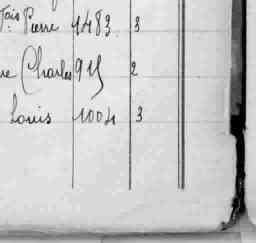 Fçois Pierre 1483 3
re Charles 915 2
Louis 1004 3